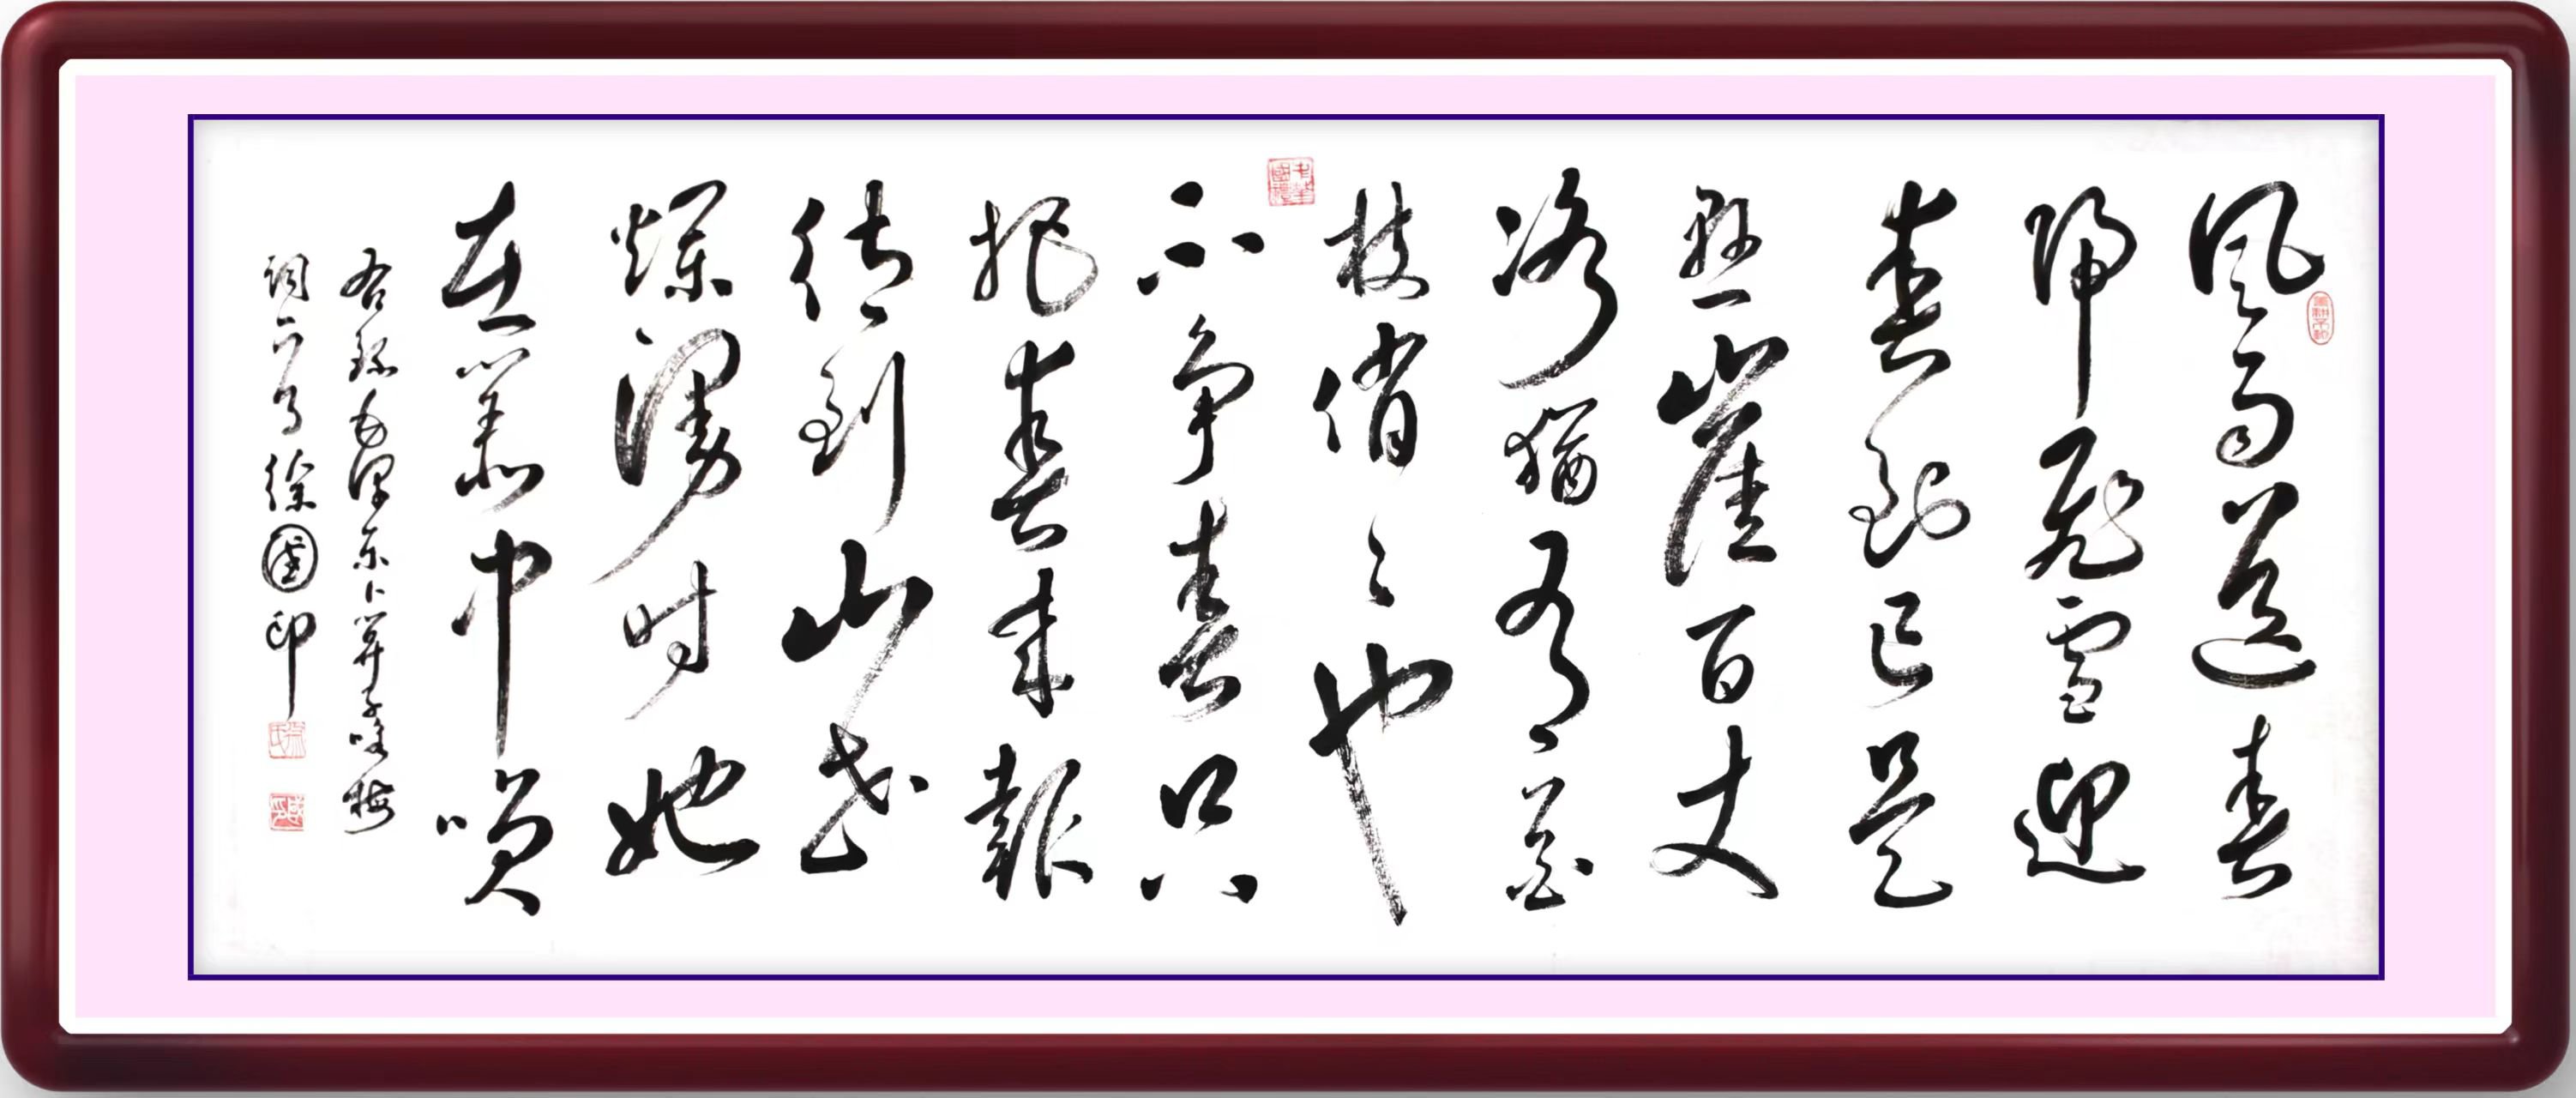 风雨送春
归飞雪迎
春到已是
悬崖百丈
冰猶有花
枝俏々也
不争春只
把春来報
待到山花
烂漫时她
在丛中笑
右录毛泽东卜算子咏梅
词一首徐国印